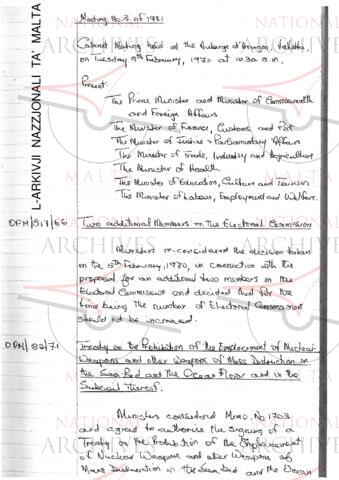 Meeting No 3 of 1971
Cabinet Meeting held at the Auberge d'Aragon, Valletta
on Tuesday 9th February, 1971 at 10.30 a.m.
Present.
The Prime Minister and Minister of Commonwealth
and Foreign Affairs
The Minister of Finance, Customs and Port
The Minister of Justice & Parliamentary Affairs
The Minister of Trade, Industry and Agriculture
The Minister of Health
The Minister of Education, Culture and Tourism
The Minister of Labour, Employment and Welfare.
OPM/917/66 Two additional Members on the Electoral Commission
Ministers re-considered the decision taken
on the 15th February, 1970, in connection with the
proposal for an additional two members on the
Electoral Commission and decided that for the
time being the number of Electoral Commission
should not be increased.
OPM/82/71 Treaty on the Prohibition of the Emplacement of Nuclear
Weapons and other Weapons of Mass Destruction on
the Sea Bed and the Ocean Floor and in the
Subsoil Thereof.
Ministers considered Memo. No 1703
and agreed to authorise the signing of a
Treaty on the Prohibition of the Emplacement
of Nuclear Weapons and other Weapons of
Mass Destruction on the Sea Bed and the Ocean
L-ARKIVJI NAZZJONALI TA' MALTA
NATIONAL
ARCHIVES